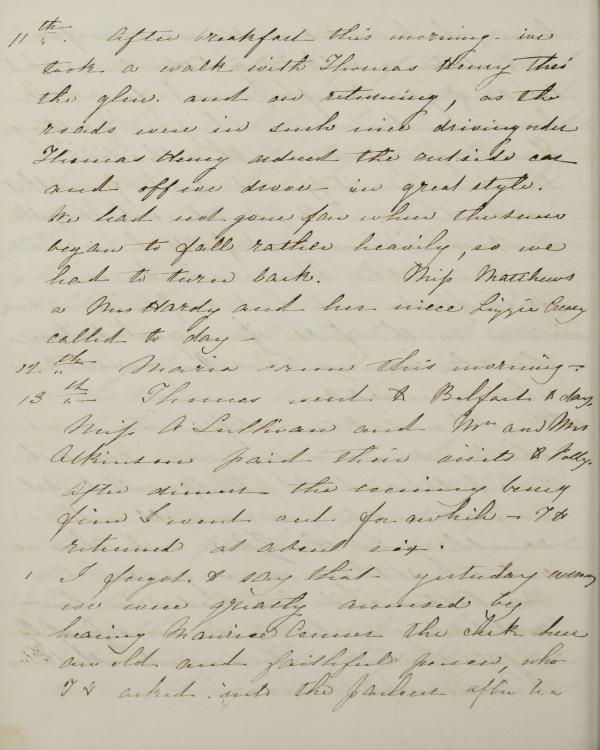 11th. After breakfast this morning we
took a walk with Thomas Henry thro'
the glen. and on returning, as the
roads were in such nice driving order
Thomas Henry ordered the outside car
and off we drove in great style.
We had not gone far when the snow
began to fall rather heavily, so we
had to turn back. Miss Matthews
a Mrs Hardy and her niece Lizzie
called to day -
12th Maria came this morning -
13th Thomas went to Belfast to day.
Miss O'Sullivan and Mr and Mrs
Atkinson paid their visits to
After dinner the evening being
fine I went out for awhile - TH
returned at about six.
I forgot to say that yesterday evening
we were greatly amused by
hearing Maurice Connor the clerk here
an old and faithful person, who
TH asked into the parlour after tea